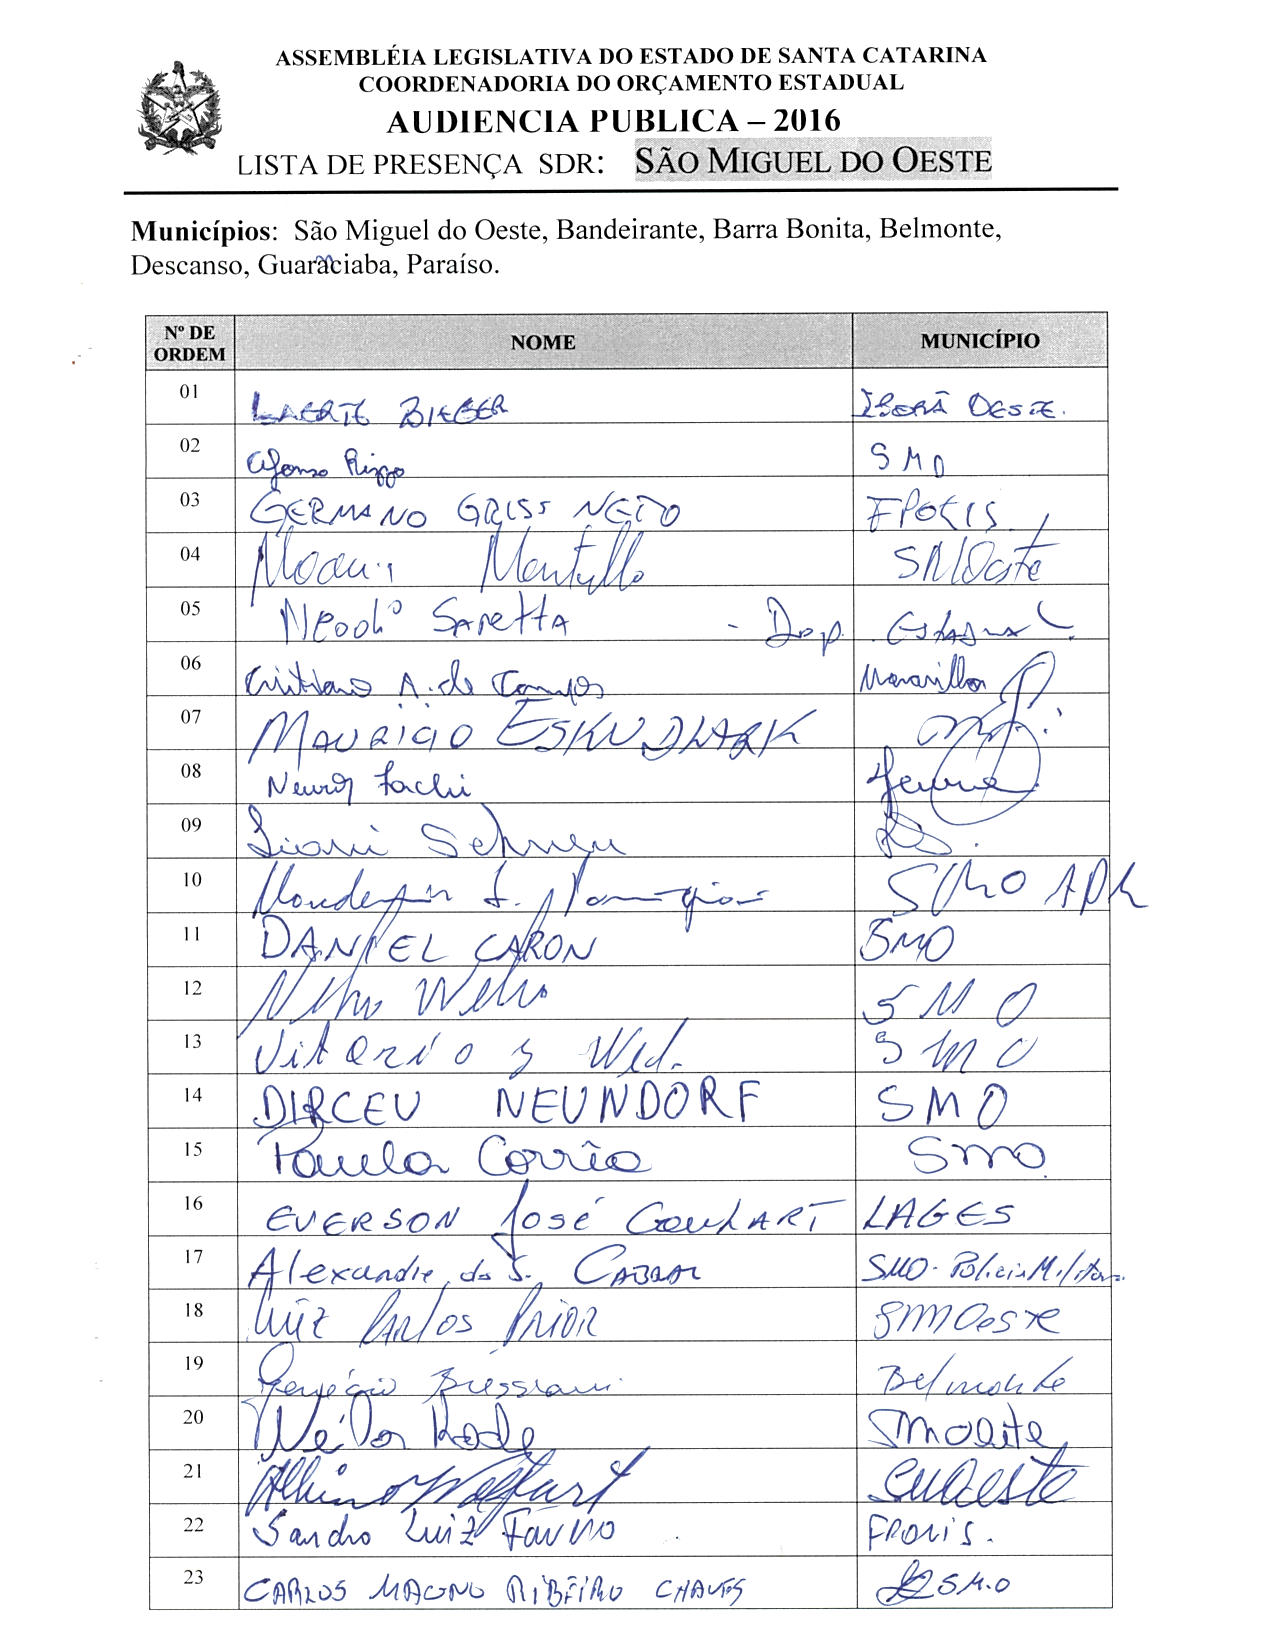 ASSEMBLÉIA LEGISLATIVA DO ESTADO DE SANTA CATARINA
COORDENADORIA DO ORÇAMENTO ESTADUAL
AUDIENCIA PUBLICA – 2016
LISTA DE PRESENÇA SDR: SÃO MIGUEL DO OESTE
Municípios: São Miguel do Oeste, Bandeirante, Barra Bonita, Belmonte,
Descanso, Guaraciaba, Paraíso.
Nº DE ORDEM NOME MUNICÍPIO
01 LAERTE BIEGER OESTE.
02 Afonso Rizzo SMO
03 GERMANO GRISS NETO FPOLIS
04 Moacir SMOeste
05 Neodi Saretta - Dep. Estadual
06 Cristiano A. de Campos Maravilha
07 MAURICIO ESKUDLARK
08
09
10 SMO ADR
11 DANIEL CARON SMO
12 SMO
13 Vitorio SMO
14 DIRCEU NEUNDORF SMO
15 Paula Corrêa SMO
16 EVERSON JOSÉ GOULHART LAGES
17 Alexandre da S. CABRAL SMO - Polícia Militar
18 Luiz Carlos PRIOR SMOeste
19 Bressiani Belmonte
20 SMOeste
21 Albino
22 Sandro Luiz FPOLIS.
23 CARLOS MAGNO RIBEIRO CHAVES SMO